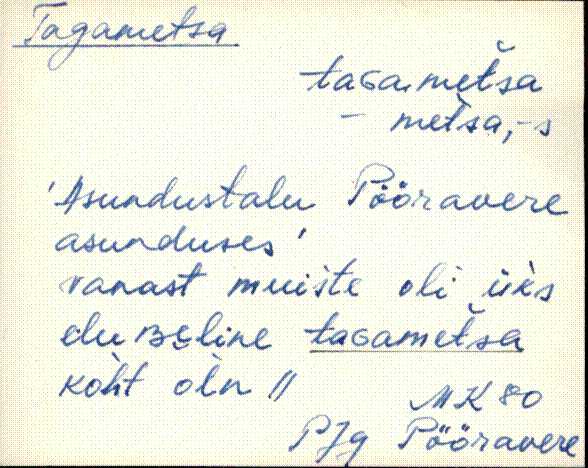 Tagametsa
taGametša
- metsa, -s
'Asundustalu Pööravere
asunduses'
vanast muiste oli üks
elu
taGametša
koht oln //
MK 80
PJg Pööravere